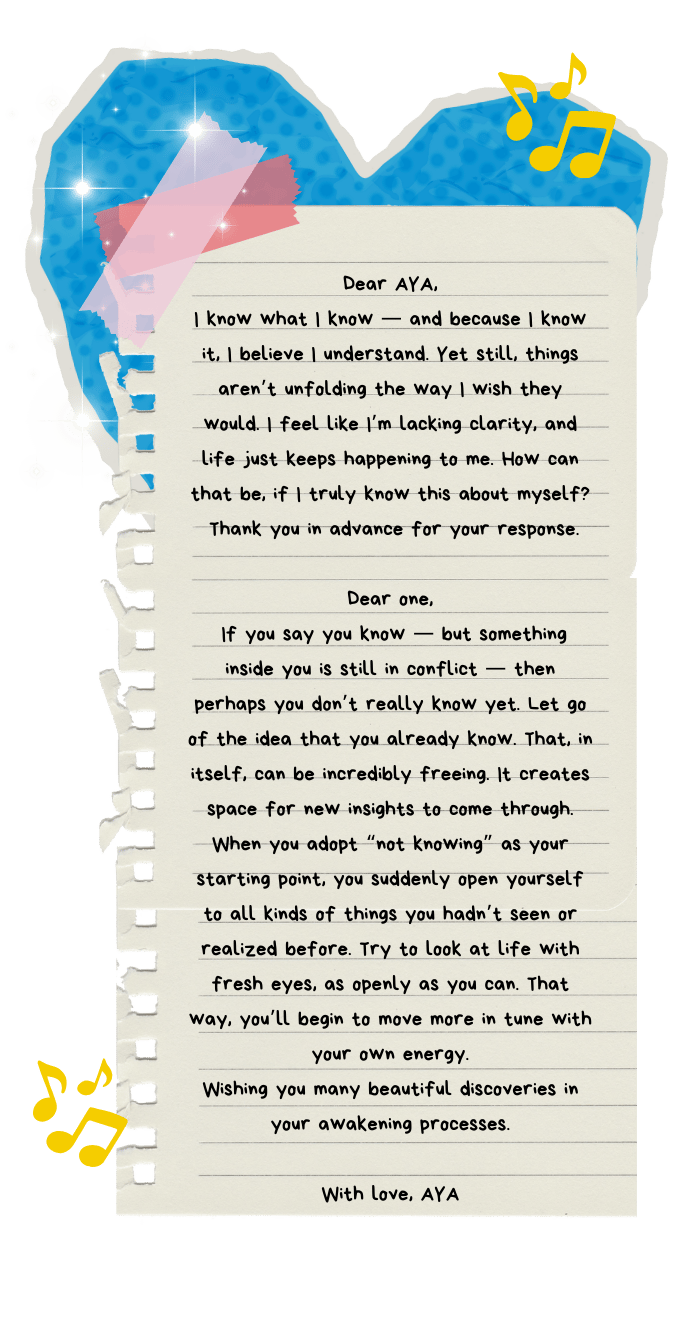 Dear AYA,
I know what I know — and because I know
it, I believe I understand. Yet still, things
aren't unfolding the way I wish they
would. I feel like I'm lacking clarity, and
life just keeps happening to me. How can
that be, if I truly know this about myself?
Thank you in advance for your response.
Dear one,
If you say you know — but something
inside you is still in conflict — then
perhaps you don't really know yet. Let go
of the idea that you already know. That, in
itself, can be incredibly freeing. It creates
space for new insights to come through.
When you adopt “not knowing” as your
starting point, you suddenly open yourself
to all kinds of things you hadn't seen or
realized before. Try to look at life with
fresh eyes, as openly as you can. That
way, you'll begin to move more in tune with
your own energy.
Wishing you many beautiful discoveries in
your awakening processes.
With love, AYA